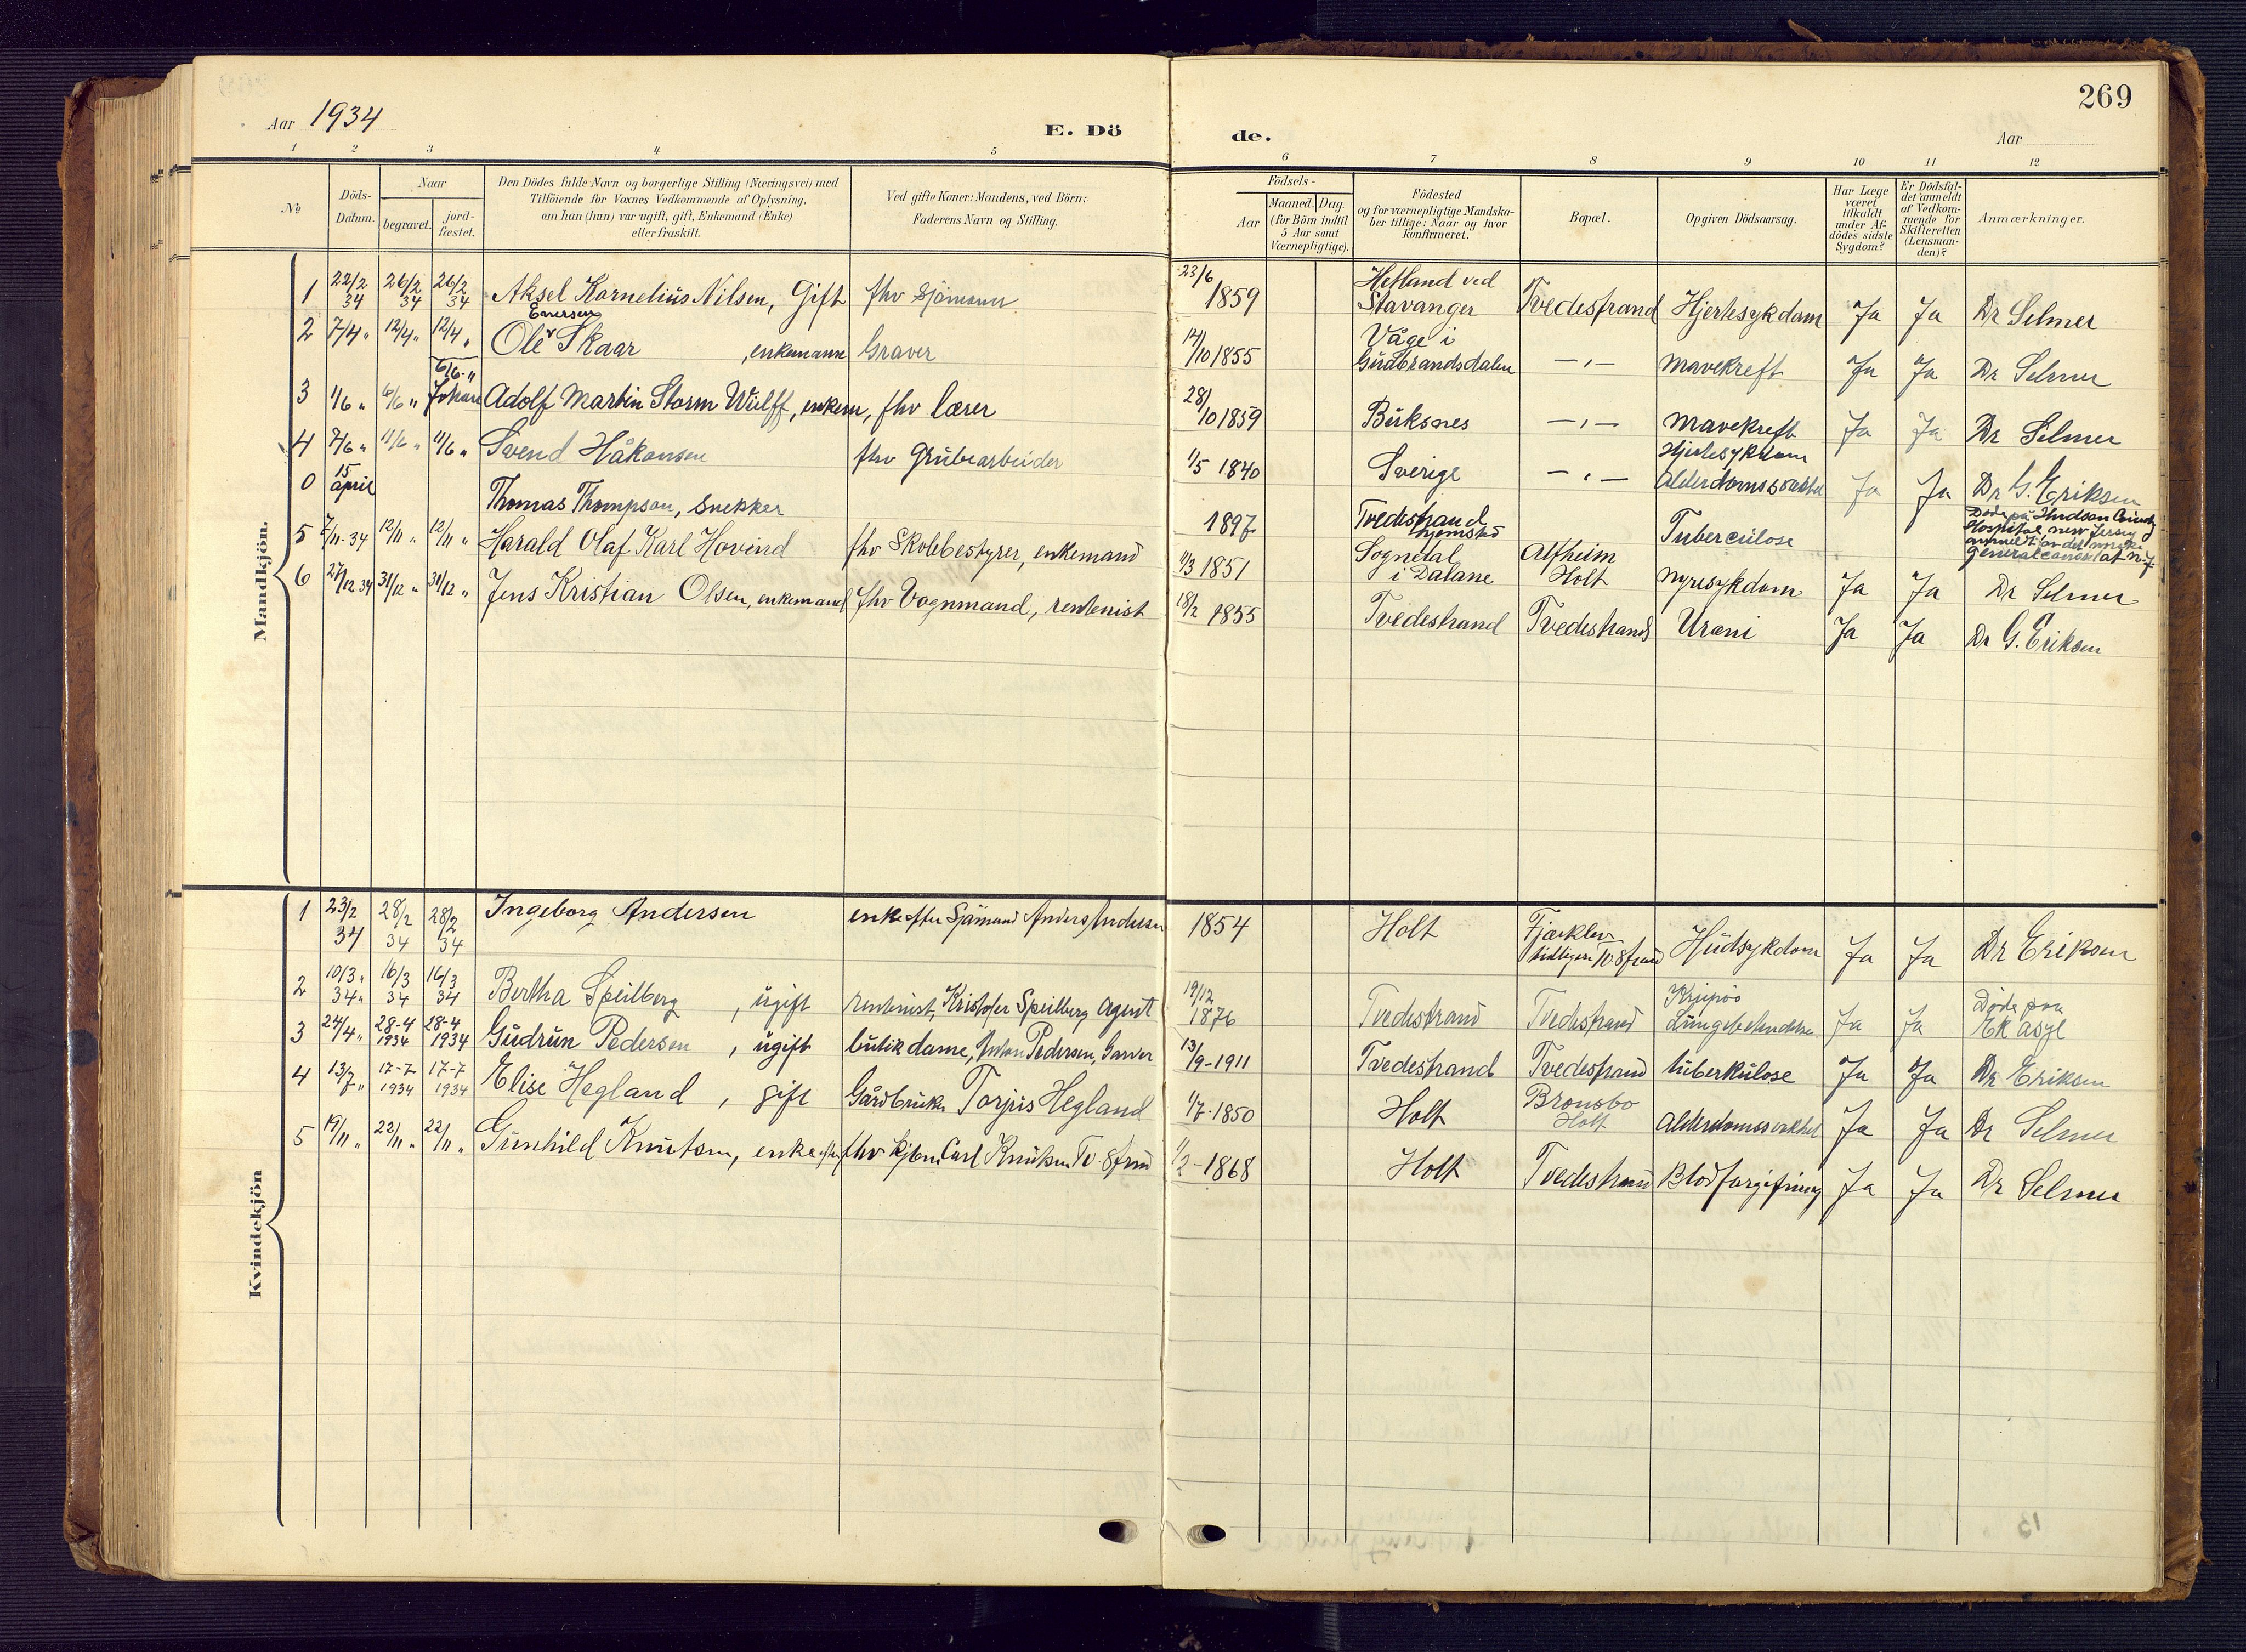 269
Aar 1934
E. Dö
de.
Aar
1 2 3 4 5 6 7 8 9 10 11 12
№
Döds-
Datum.
Naar
begravet.
jord-
fæstet.
Den Dödes fulde Navn og borgerlige Stilling (Næringsvei) med
Tilföiende for Voxnes Vedkommende af Oplysning,
om han (hun) var ugift, gift, Enkemand (Enke)
eller fraskilt.
Ved gifte Koner: Mandens, ved Börn:
Faderens Navn og Stilling.
Födsels-
Aar
Maaned.
Dag.
(for Börn indtil
5 Aar samt
Værnepligtige).
Födested
og for værnepligtige Mandska-
ber tillige: Naar og hvor
konfirmeret.
Bopæl.
Opgiven Dödsaarsag.
Har Læge
været
tilkaldt
under Af-
dödes sidste
Sygdom?
Er Dödsfal-
det anmeldt
af Vedkom-
mende for
Skifteretten
(Lensman-
den)?
Anmærkninger.
Mandkjön.
1 22/2 34 26/2 34 26/2 34 Aksel Kornelius Nilsen, Gift fhv Sjömann 23/6 1859 Hetland ved Stavanger Tvedestrand Hjertesykdom Ja Ja Dr Selmer
2 7/4 " 12/4 " 12/4 " Ole Skaar, enkemann Graver 14/10 1855 Våge i Gudbrandsdalen — " — Mavekreft Ja Ja Dr Selmer
3 1/6 " 6/6 " 6/6 " Adolf Martin Storm Wulff, enkem, fhv lærer 28/10 1859 Buksnes — " — Mavekreft Ja Ja Dr Selmer
4 7/6 " 11/6 " 11/6 " Svend Håkonsen fhv Grubearbeider 1/5 1840 Sverige — " — Hjertesykdom Alderdomssvakhet Ja Ja Dr G. Eriksen
0 15 april Thomas Thompson, Snekker 1897 Tvedestrand hjemsted Tuberculose Döde på Hudson County Hospital, new Jersey anmeldt av det norske generalconsulat N.Y.
5 7/11-34 12/11 " 12/11 " Harald Olaf Karl Hovind fhv Skolebestyrer, enkemand 11/3 1851 Sogndal i Dalane Alfheim Holt Nyresykdom Ja Ja Dr Selmer
6 27/12 34 31/12 " 31/12 " Jens Kristian Olsen, enkemand fhv Vognmand, rentenist 18/2 1855 Tvedestrand Tvedestrand Urani Ja Ja Dr G. Eriksen
Kvindekjön
1 23/2 34 28/2 34 28/2 34 Ingeborg Andersen enke efter Sjömand Anders Andersen 1854 Holt Fjærkleiv tidligere Hudsykdom Ja Ja Dr Eriksen
2 10/3 " 34 " 16/3 34 16/3 34 Bertha Speilberg, ugift rentenist, Kristofer Speilberg Agent 19/12 1876 Tvedestrand Tvedestrand Lungebetendelse Ja Ja Döde paa EK asyl
3 24/4 " 28-4 1934 28-4 1934 Gudrun Pedersen, ugift butikdame, Anton Pedersen, Garver 13/9-1911 Tvedestrand Tvedestrand tuberkulose Ja Ja Dr Eriksen
4 13/7 " 17-7 1934 17-7 1934 Elise Hegland, gift Gårdbruker Torjus Hegland 1/7-1850 Holt Bronsbo Holt Alderdomssvakhet Ja Ja Dr Selmer
5 19/11 " 22/11 " 22/11 " Gunhild Knutsen, enke efter fhv Kjbm Carl Knutsen Tv-strand 1/2-1868 Holt Tvedestrand Blodforgiftning Ja Ja Dr Selmer